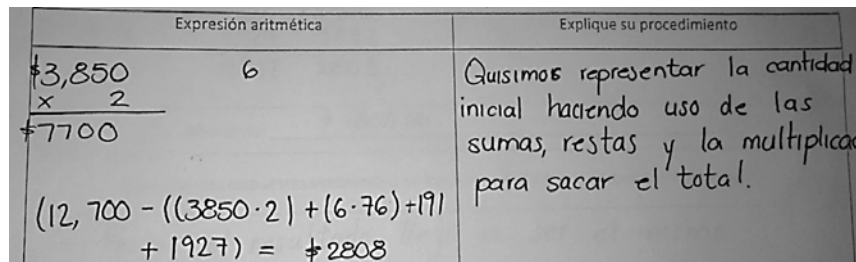 Expresión aritmética
Explique su procedimiento
$3,850 6
x 2
$7700
(12,700 - ((3850·2) + (6·76) +191
+ 1927) = $2808
Quisimos representar la cantidad
inicial haciendo uso de las
sumas, restas y la multiplicac
para sacar el total.